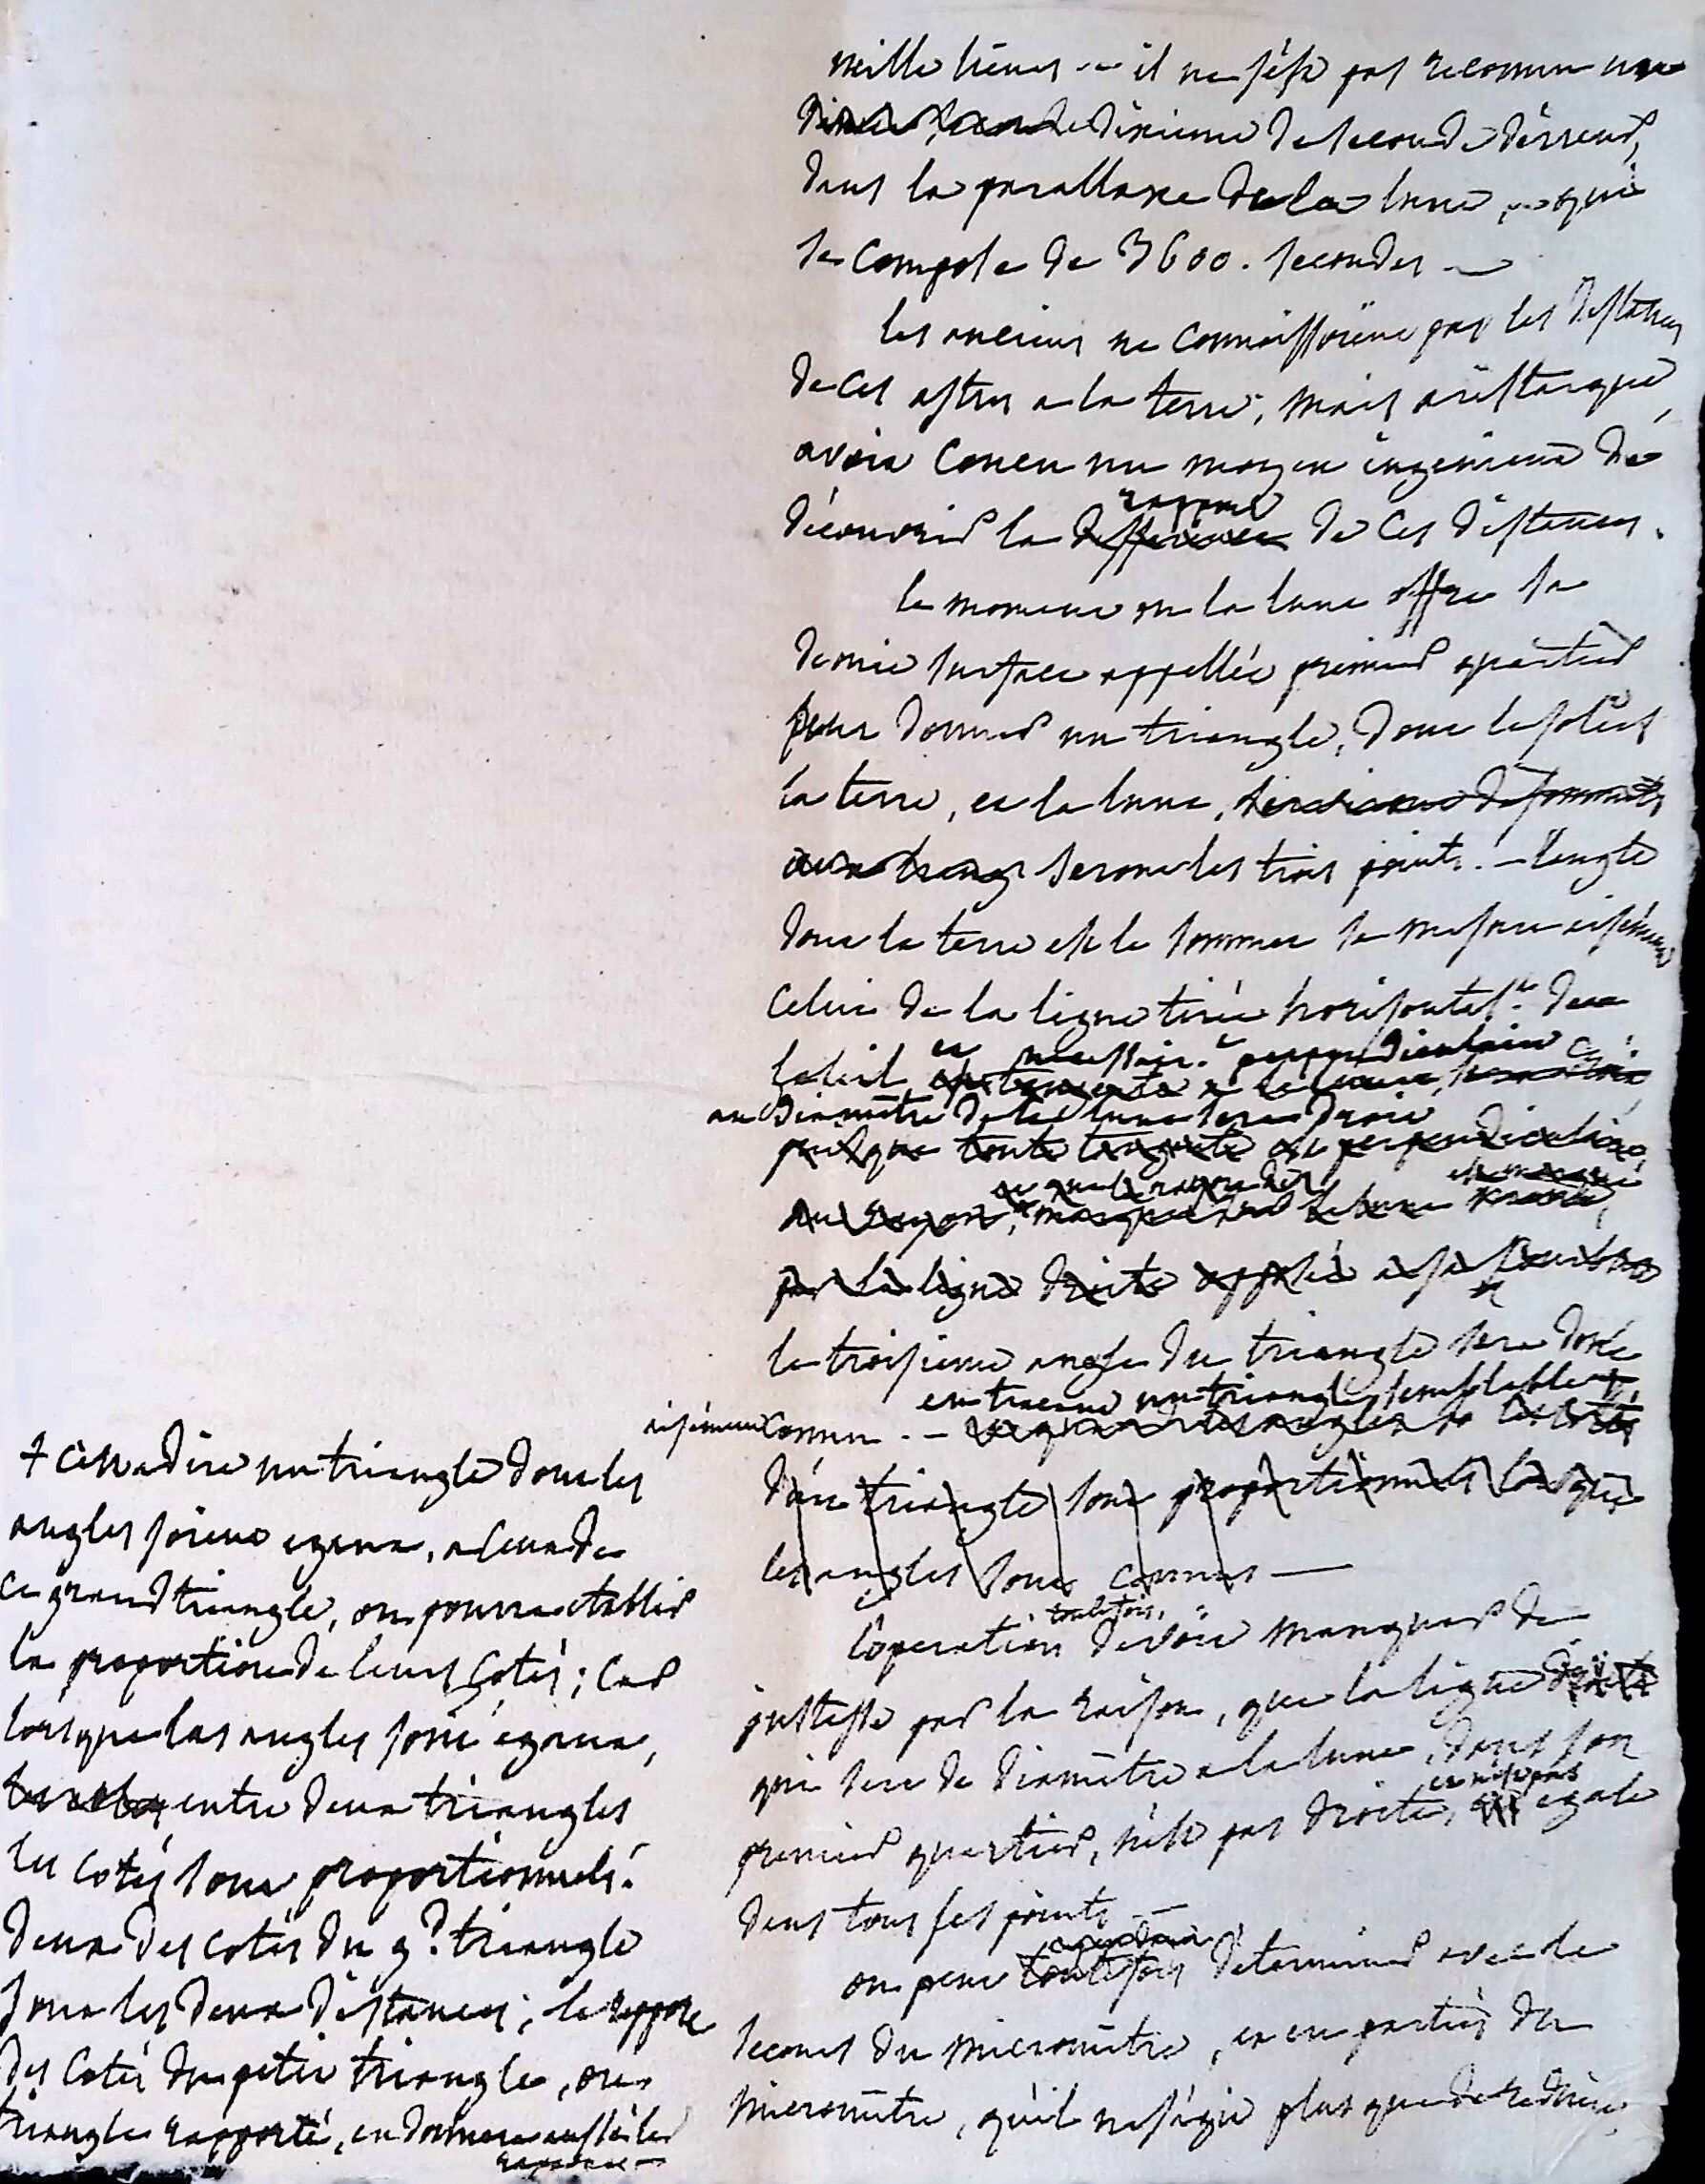 mille lieues -- il ne s'est pas reconnu une
dixieme de seconde d'erreur,
dans la parallaxe de la lune, qui
se compose de 3600. secondes —
les anciens ne connoissoient pas les distances
de ces astres a la terre, mais aristarque,
avoit concu un moyen ingenieux de
rapport
découvrir la difference de ces distances.
le moment ou la lune offre sa
demie surface appellée premier quartier
peut donner un triangle, dont le soleil
la terre, et la lune,
seront les trois points. — l'angle
dont la terre est le sommet se mesure aisément
celui de la ligne tirée horisontalt.
et necessairt. perpendiculaire
le soleil
au diamètre de la lune sera droit
puisque toute tangente est perpendiculaire
par la ligne droite opposée a sa
le troisieme angle du triangle sera donc
en tracant un triangle semblable +
aisément connu. —
d'un triangle sont proportionnels lorsque
les angles sont connus —
toutefois,
l'operation devoit manquer de
justesse par la raison, que la ligne droite
qui sert de diamètre a la lune, dans son
et n'est pas
premier quartier, n'est pas droite, egale
dans tous ses points —
cependant
on peut toutefois determiner avec le
secours du micromètre, et en parties du
micromètre, qu'il ne s'agit plus que de reduire,
+ c'est a dire un triangle dont les
angles soient egaux, a ceux de
ce grand triangle, on pourra etablir
la proportion de leurs cotés; car
lorsque les angles sont egaux,
entre deux triangles
les cotés sont proportionnels.
deux des cotés du gd. triangle
sont les deux distances; le rapport
des cotés du petit triangle, ou
triangle rapporté, en donnera aussi le
rapport —